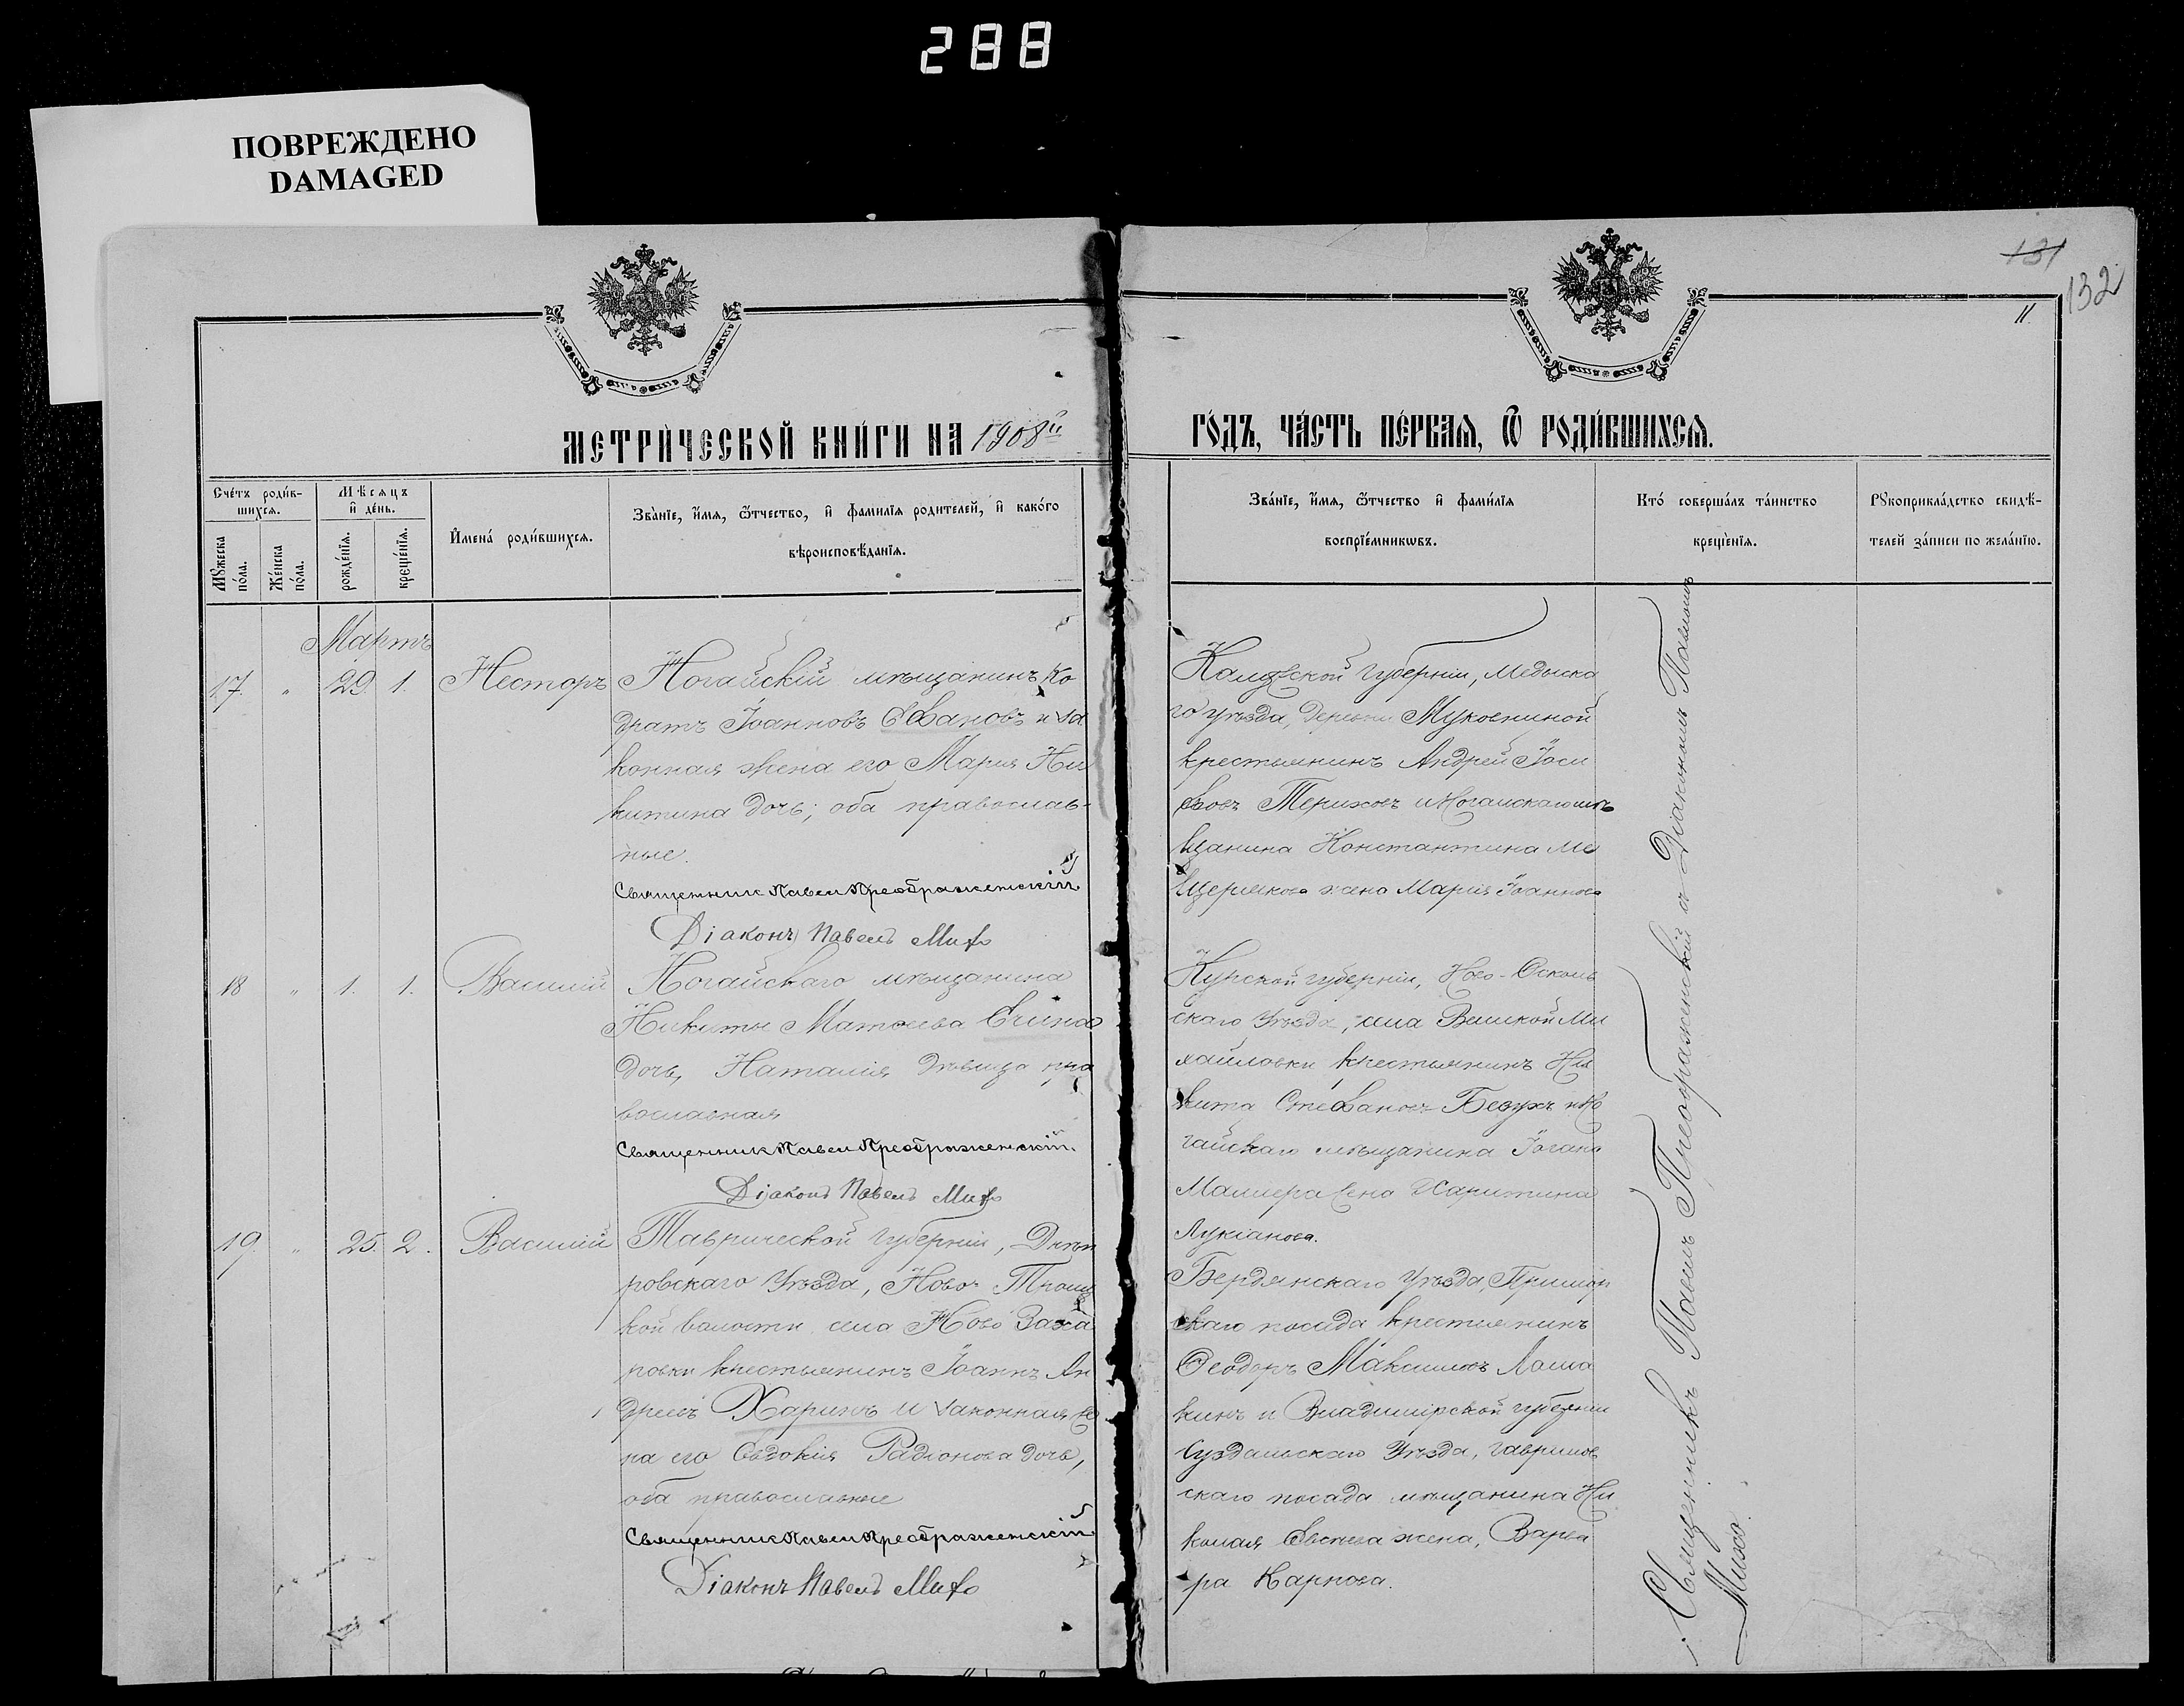 288
ПОВРЕЖДЕНО
DAMAGED
131
132
11
МЕТРИ́ЧЕСКОЙ КНИ́ГИ НА 1908й
ГО́ДЪ, ЧА́СТЬ ПЕ́РВАЯ, Ѿ РОДИ́ВШИХСЯ.
Сче́тъ роди́в-
шихся.
Мѣсяцъ
и де́нь.
Му́жеска
по́ла.
Же́нска
по́ла.
рожде́нїя.
креще́нїя.
Имена́ роди́вшихся.
Зва́нїе, и́мя, ѻ́тчество, и фами́лїя родителей, и како́го
вѣроисповѣ́данїя.
Зва́нїе, и́мя, ѻ́тчество и фами́лїя
воспрїе́мникωвъ.
Кто́ соверша́лъ та́инство
креще́нїя.
Рукоприкла́дство свидѣ́-
телей за́писи по жела́нїю.
Мартъ
17. " 29. 1. Несторъ
Ногайскій мѣщанинъ Ко
дратъ Іоанновъ и за
конная жена его Марія Ни
китина дочь; оба православ-
ные.
Священникъ Павелъ Преображенскій
Діаконъ Павелъ Михо
Калужской губерніи, Медынска
го уѣзда, деревни
крестьянинъ Андрей Іоси
фовъ и Ногайскаго мѣ
щанина Константина Ме
щерякова жена Марія Іоаннова
18 " 1. 1. Василій
Ногайскаго мѣщанина
Никиты Матѳеева
дочь, Наталія дѣвица пра
вославная
Священникъ Павелъ Преображенскій.
Діаконъ Павелъ Михо
Курской губерніи, Ново-Осколь
скаго уѣзда, села Великой Ми
хайловки крестьянинъ Ни
кита Стефановъ и Но
гайскаго мѣщанина
жена Харитина
Лукіанова.
19. " 25. 2. Василій
Таврической губерніи, Днѣп
ровскаго уѣзда, Ново-Троиц
кой волости села Ново Заха
ровки крестьянинъ Іоаннъ Ан
дреевъ Харинъ и законная же
на его Евдокія Радіонова дочь,
оба православные
Священникъ Павелъ Преображенскій
Діаконъ Павелъ Михо
Бердянскаго уѣзда,
скаго посада крестьянинъ
Ѳеодоръ Максимовъ Лаша
кинъ и Владимірской губерніи
Суздальскаго уѣзда, Гаврилов
скаго посада мѣщанина Ни
колая жена, Варва
ра Карпова.
Священникъ Павелъ Преображенскій съ Діакономъ Павломъ
Михо.